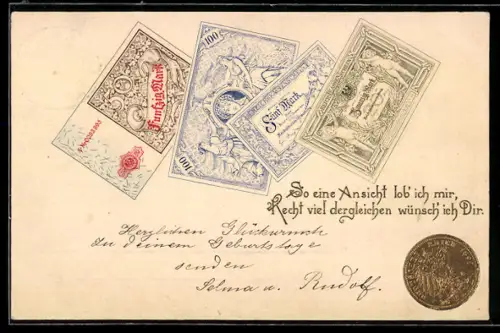 Fünfzig Mark
100
100
Fünf Mark
So eine Ansicht lob' ich mir,
Recht viel dergleichen wünsch' ich Dir.
Herzlichen Glückwunsch
zu deinem Geburtstage
senden
Selma u. Rudolf.